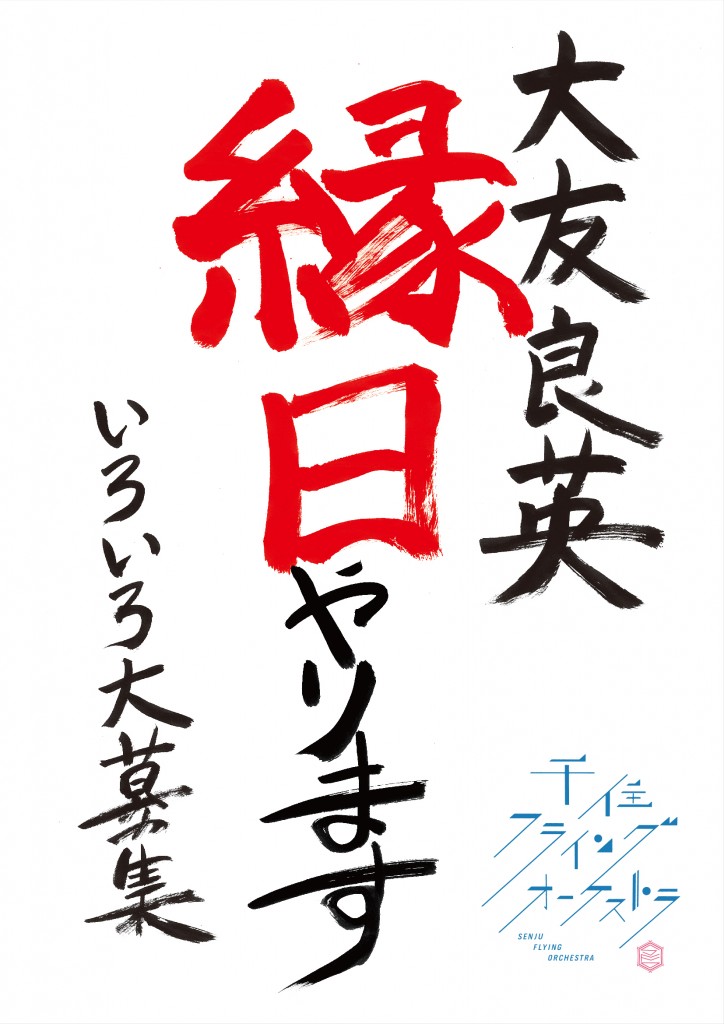 大友良英
縁日やります
いろいろ大募集
千住
フライング
オーケストラ
SENJU
FLYING
ORCHESTRA